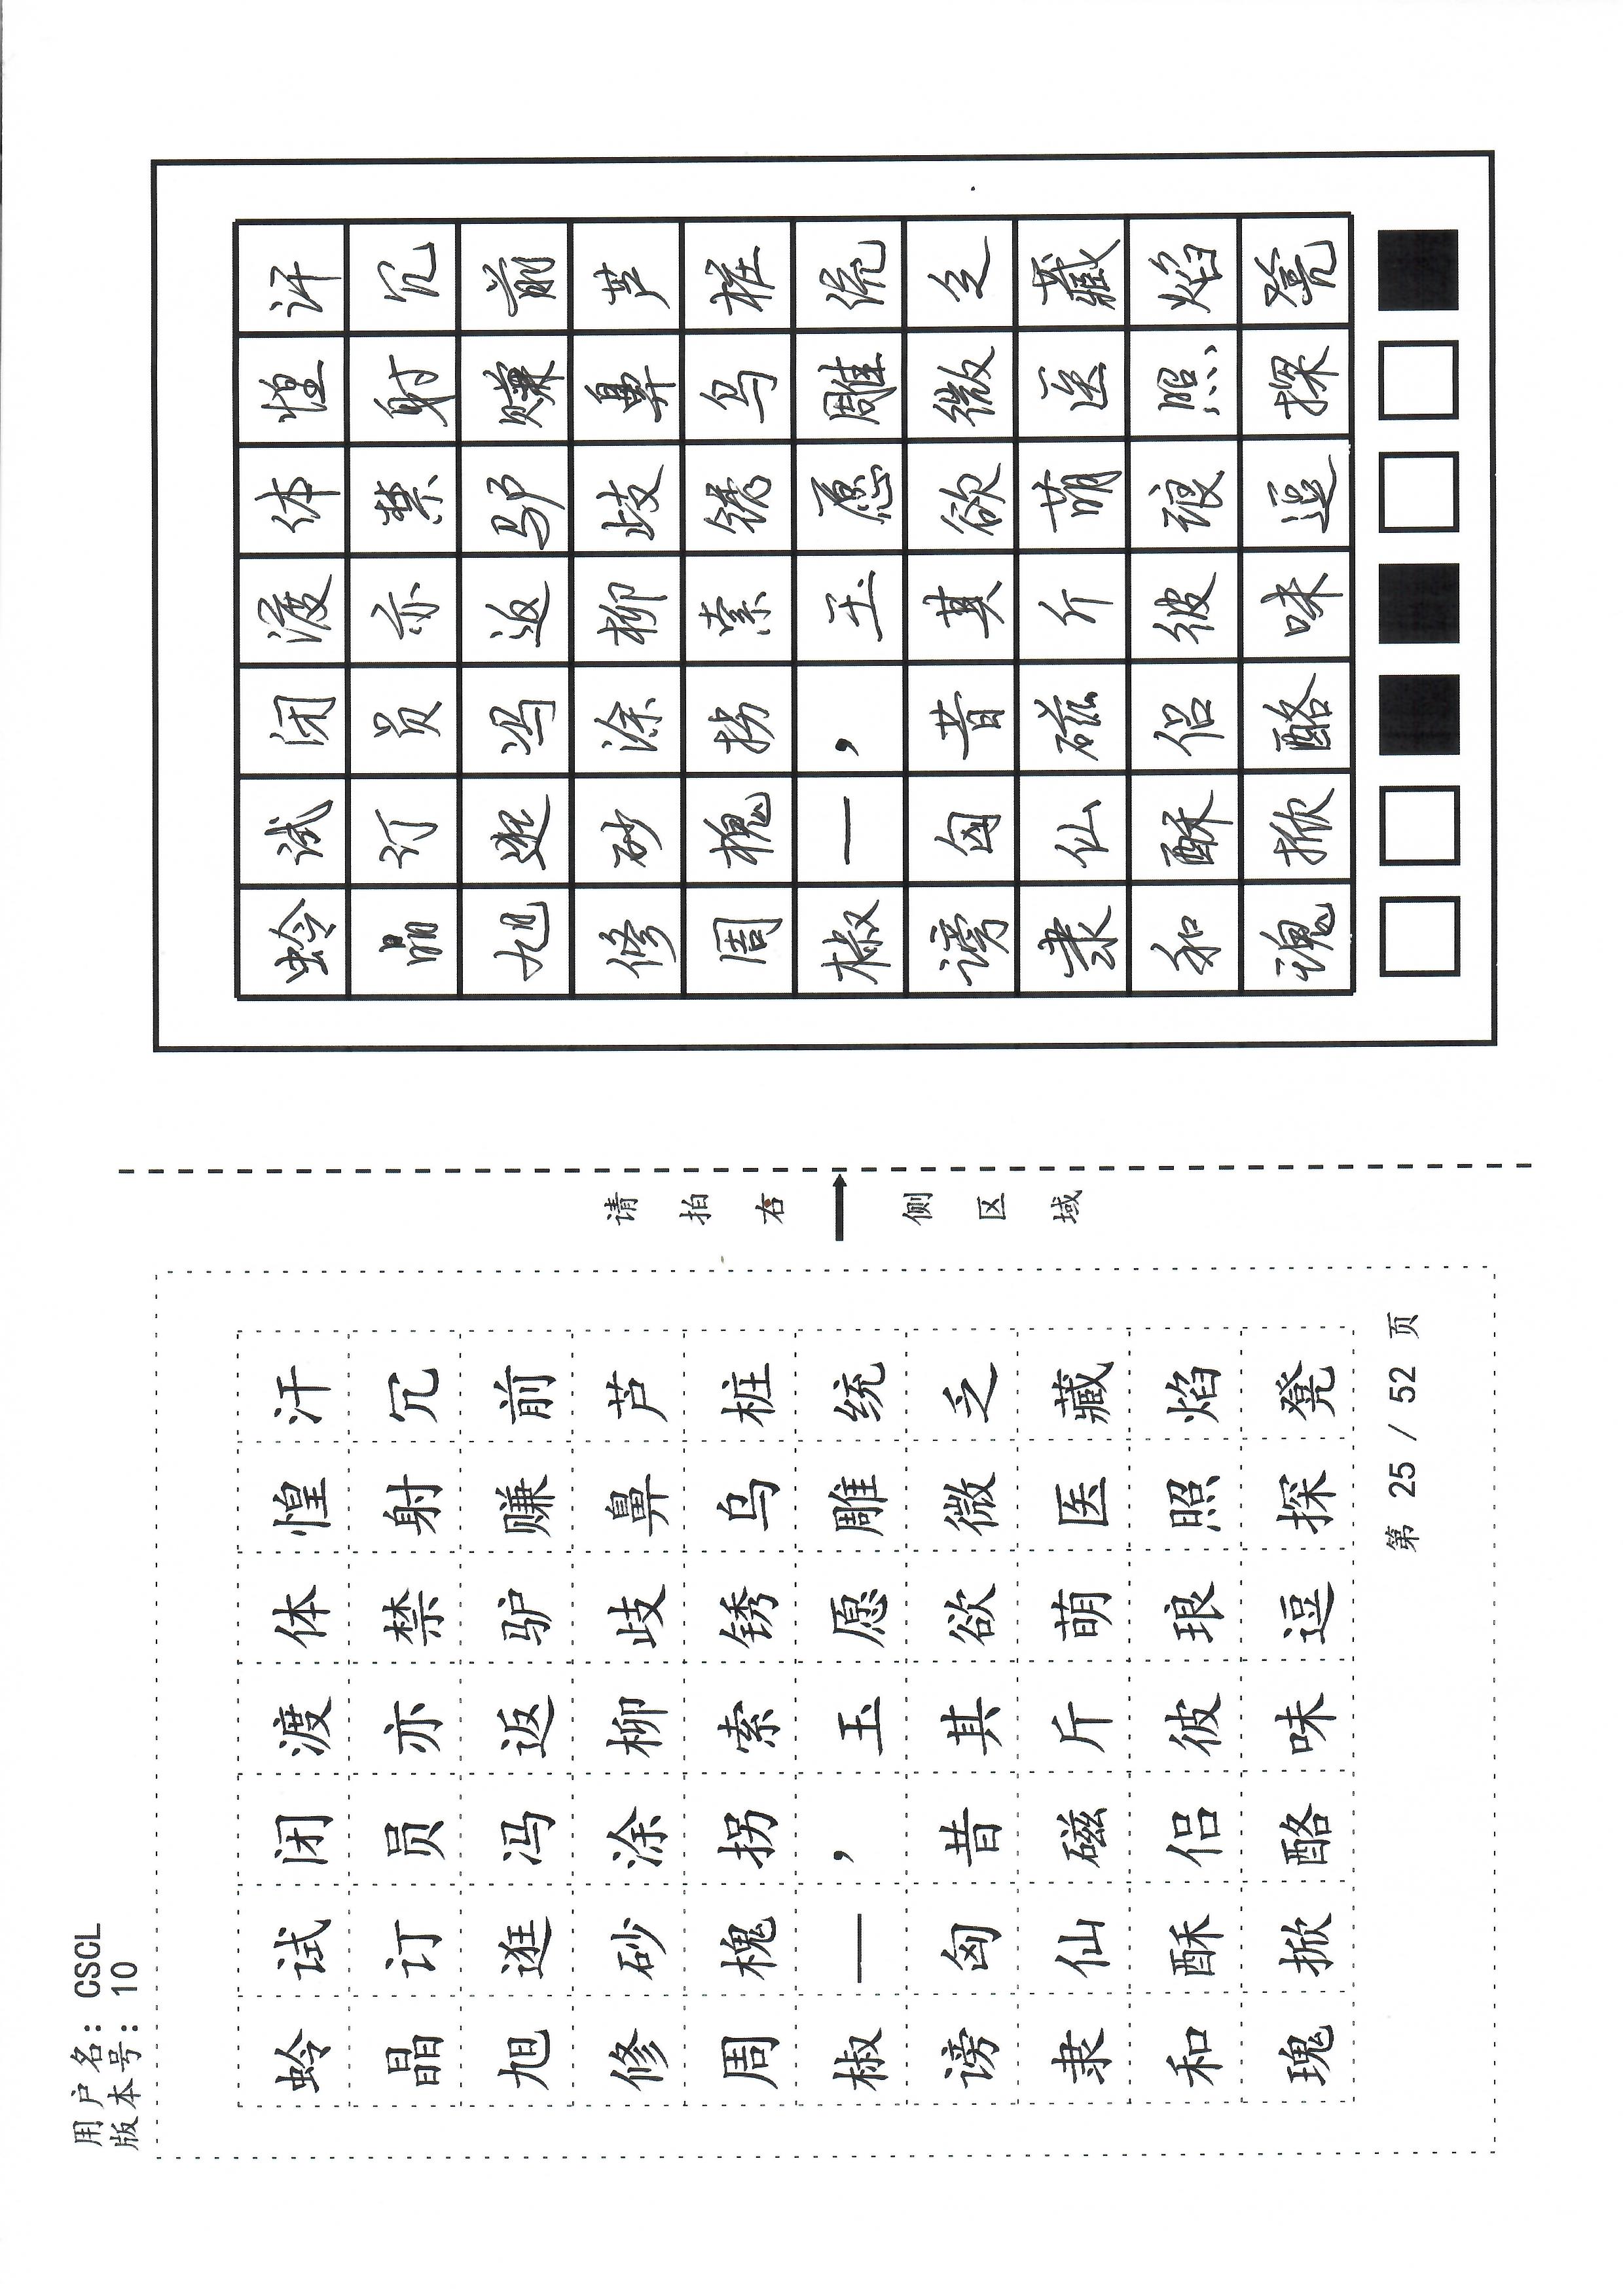 用户名: CSCL
版本号: 10
蛉试闭渡体惶汗
晶订员亦禁射冗
旭逛冯返驴赚前
修砂涂柳歧鼻芦
周槐拐索锈乌桩
椒—,玉愿雕统
谤匈昔其欲微乏
隶仙磁斤萌医藏
和酥侣彼琅照焰
瑰掀酪味逗探凳
第 25 / 52 页
请拍右侧区域
蛉试闭渡体惶汗
晶订员亦禁射冗
旭逛冯返驴赚前
修砂涂柳歧鼻芦
周槐拐索锈乌桩
椒—,玉愿雕统
谤匈昔其欲微乏
隶仙磁斤萌医藏
和酥侣彼琅照焰
瑰掀酪味逗探凳